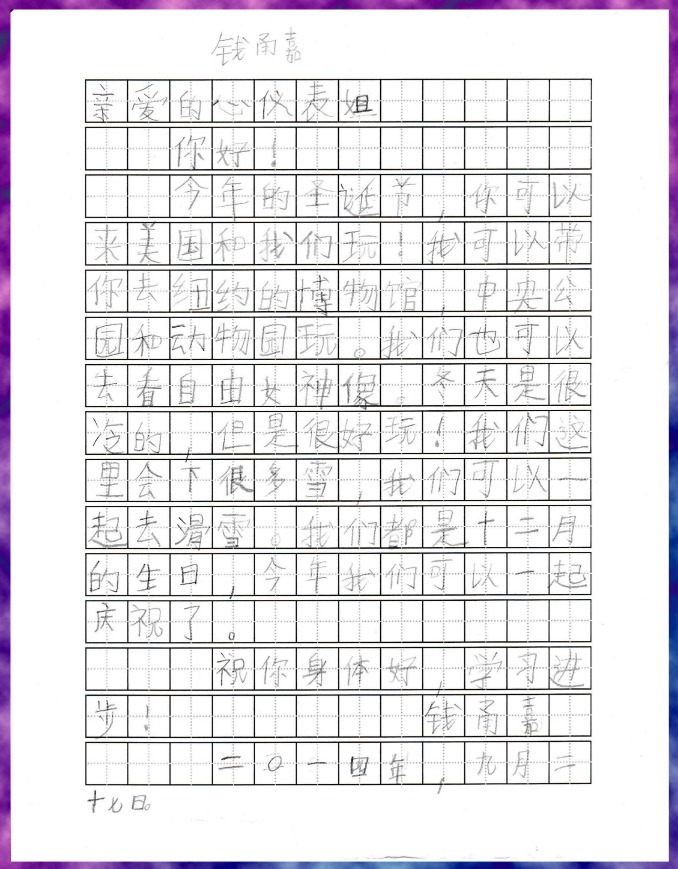 钱甬嘉
亲爱的心仪表姐
你好！
今年的圣诞节，你可以
来美国和我们玩！我可以带
你去纽约的博物馆，中央公
园和动物园玩。我们也可以
去看自由女神像。冬天是很
冷的，但是很好玩！我们这
里会下很多雪，我们可以一
起去滑雪。我们都是十二月
的生日，今年我们可以一起
庆祝了。
祝你身体好，学习进
步！ 钱甬嘉
二〇一四年，九月二
十七日。